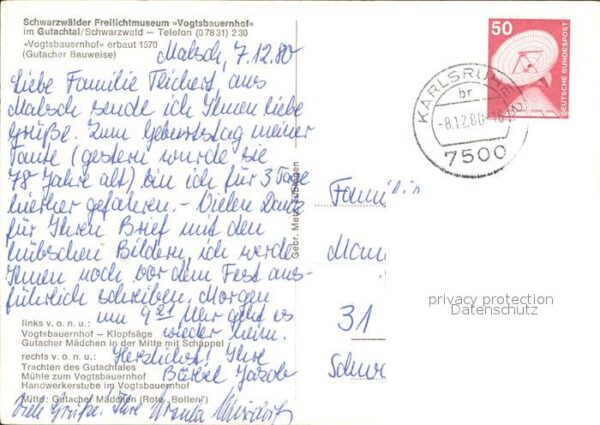 Schwarzwälder Freilichtmuseum »Vogtsbauernhof«
im Gutachtal/Schwarzwald — Telefon (0 78 31) 2 30
»Vogtsbauernhof« erbaut 1570
(Gutacher Bauweise)
Malsch, 7.12.80
Liebe Familie Teichert, aus
Malsch sende ich Ihnen liebe
Grüße. Zum Geburtstag meiner
Tante (gestern wurde sie
78 Jahre alt) bin ich für 3 Tage
hierher gefahren. - Vielen Dank
für Ihren Brief mit den
hübschen Bildern, ich werde
Ihnen noch vor dem Fest aus-
führlich schreiben. Morgen
um 9 21 Uhr geht es
wieder heim.
Herzlichst! Ihre
Bärbel Jacob
Viele Grüße. Ihre Ursula
links v. o. n. u.:
Vogtsbauernhof — Klopfsäge
Gutacher Mädchen in der Mitte mit Schäppel
rechts v. o. n. u.:
Trachten des Gutachtales
Mühle zum Vogtsbauernhof
Handwerkerstube im Vogtsbauernhof
Mitte: Gutacher Mädchen (Rote „Bollen")
Gebr. Metz, Tübingen
50
DEUTSCHE BUNDESPOST
KARLSRUHE
br
-8.12.80
7500
Famili
31
privacy protection
Datenschutz